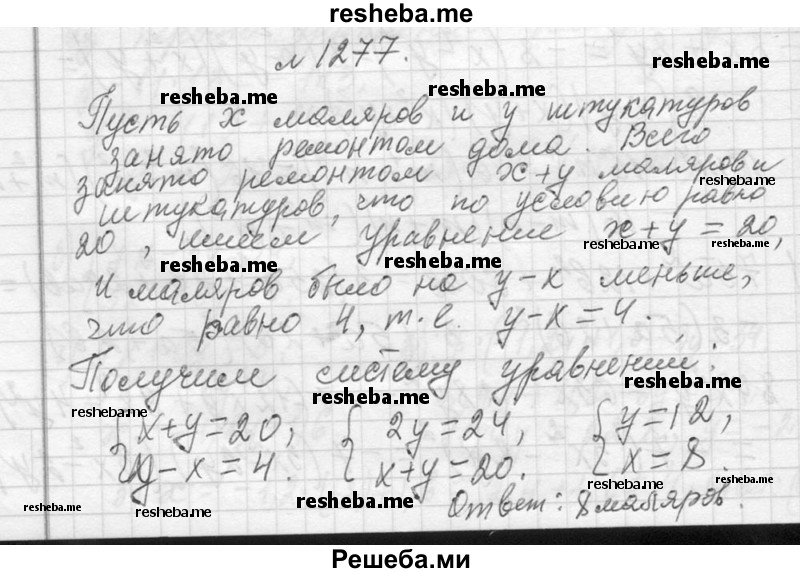 resheba.me
№ 1277.
resheba.me
resheba.me resheba.me
Пусть x маляров и y штукатуров
занято ремонтом дома. Всего
занято ремонтом x+y маляров и
resheba.me
штукатуров, что по условию равно
20, имеем уравнение x+y=20,
resheba.me resheba.me
resheba.me resheba.me
И маляров было на y-x меньше,
что равно 4, т.е. y-x=4.
Получим систему уравнений:
resheba.me resheba.me resheba.me
{ x+y=20, { 2y=24, { y=12,
y-x=4. x+y=20. x=8.
resheba.me resheba.me
resheba.me resheba.me resheba.me resheba.me
Ответ: 8 маляров.
Решеба.ми